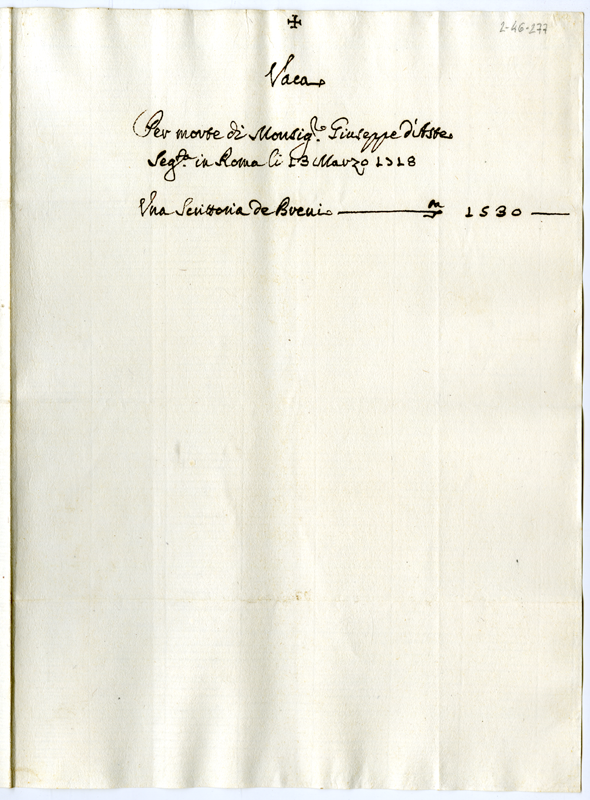 ✠
2-46-277
Vaca
Per morte di Monsig.r Giuseppe d'Aste
Seg.ta in Roma li 13 Marzo 1718
Una Scrittoria de Brevi — m 1530 —